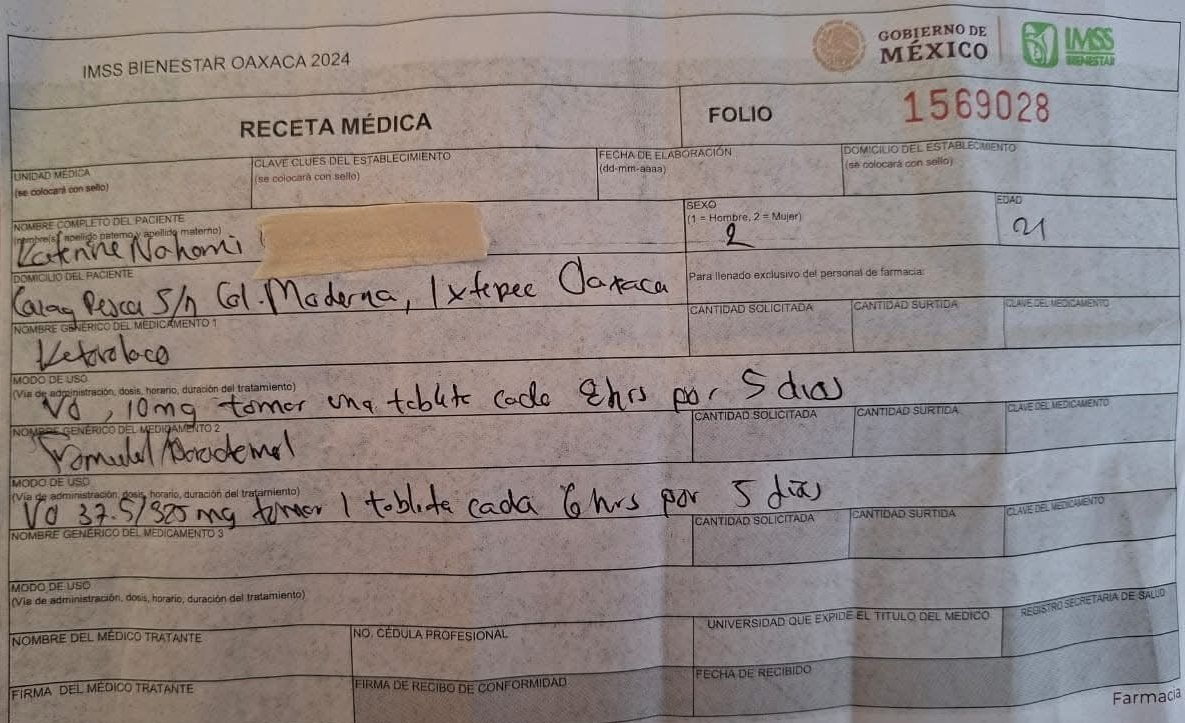 IMSS BIENESTAR OAXACA 2024
GOBIERNO DE
MÉXICO
IMSS
BIENESTAR
RECETA MÉDICA
FOLIO
1569028
UNIDAD MÉDICA
(se colocará con sello)
CLAVE CLUES DEL ESTABLECIMIENTO
(se colocará con sello)
FECHA DE ELABORACIÓN
(dd-mm-aaaa)
DOMICILIO DEL ESTABLECIMIENTO
(se colocará con sello)
NOMBRE COMPLETO DEL PACIENTE
(nombre(s), apellido paterno y apellido materno)
Nahomi
SEXO
(1 = Hombre, 2 = Mujer)
2
EDAD
21
DOMICILIO DEL PACIENTE
Pesca S/n Col. Moderna, Ixtepec Oaxaca
Para llenado exclusivo del personal de farmacia:
NOMBRE GENÉRICO DEL MEDICAMENTO 1
Ketorolaco
CANTIDAD SOLICITADA
CANTIDAD SURTIDA
CLAVE DEL MEDICAMENTO
MODO DE USO
(Vía de administración, dosis, horario, duración del tratamiento)
VO, 10mg tomar una tableta cada 8hrs por 5 días
NOMBRE GENÉRICO DEL MEDICAMENTO 2
Tramadol/Paracetamol
CANTIDAD SOLICITADA
CANTIDAD SURTIDA
CLAVE DEL MEDICAMENTO
MODO DE USO
(Vía de administración, dosis, horario, duración del tratamiento)
VO 37.5/325 mg tomar 1 tableta cada 6 hrs por 5 días
NOMBRE GENÉRICO DEL MEDICAMENTO 3
CANTIDAD SOLICITADA
CANTIDAD SURTIDA
CLAVE DEL MEDICAMENTO
MODO DE USO
(Vía de administración, dosis, horario, duración del tratamiento)
NOMBRE DEL MÉDICO TRATANTE
NO. CÉDULA PROFESIONAL
UNIVERSIDAD QUE EXPIDE EL TITULO DEL MEDICO
REGISTRO SECRETARIA DE SALUD
FIRMA DEL MÉDICO TRATANTE
FIRMA DE RECIBO DE CONFORMIDAD
FECHA DE RECIBIDO
Farmacia